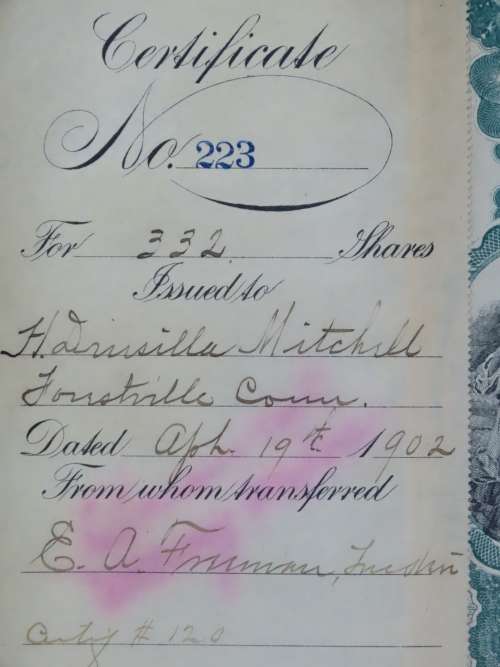 Certificate
No. 223
For 332 Shares
Issued to
H. Drusilla Mitchell
Conn.
Dated Aph. 19th 1902
From whom transferred
E. A. Freeman,
Certif # 120